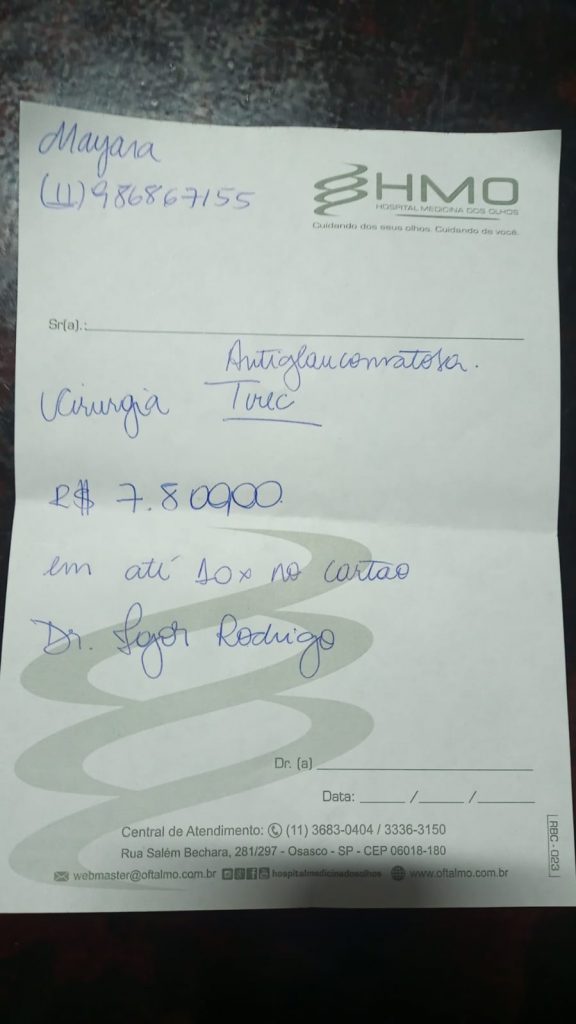 Mayara
(11) 986867155
HMO
HOSPITAL MEDICINA DOS OLHOS
Cuidando dos seus olhos. Cuidando de você.
Sr(a).:
Antiglaucomatosa.
Cirurgia Trec
R$ 7.800,00
em até 10x no cartao
Dr. Igor Rodrigo
Dr. (a)
Data: ___/___/___
Central de Atendimento: (11) 3683-0404 / 3336-3150
Rua Salém Bechara, 281/297 - Osasco - SP - CEP 06018-180
webmaster@oftalmo.com.br hospitalmedicinadosolhos www.oftalmo.com.br
RBC - 023